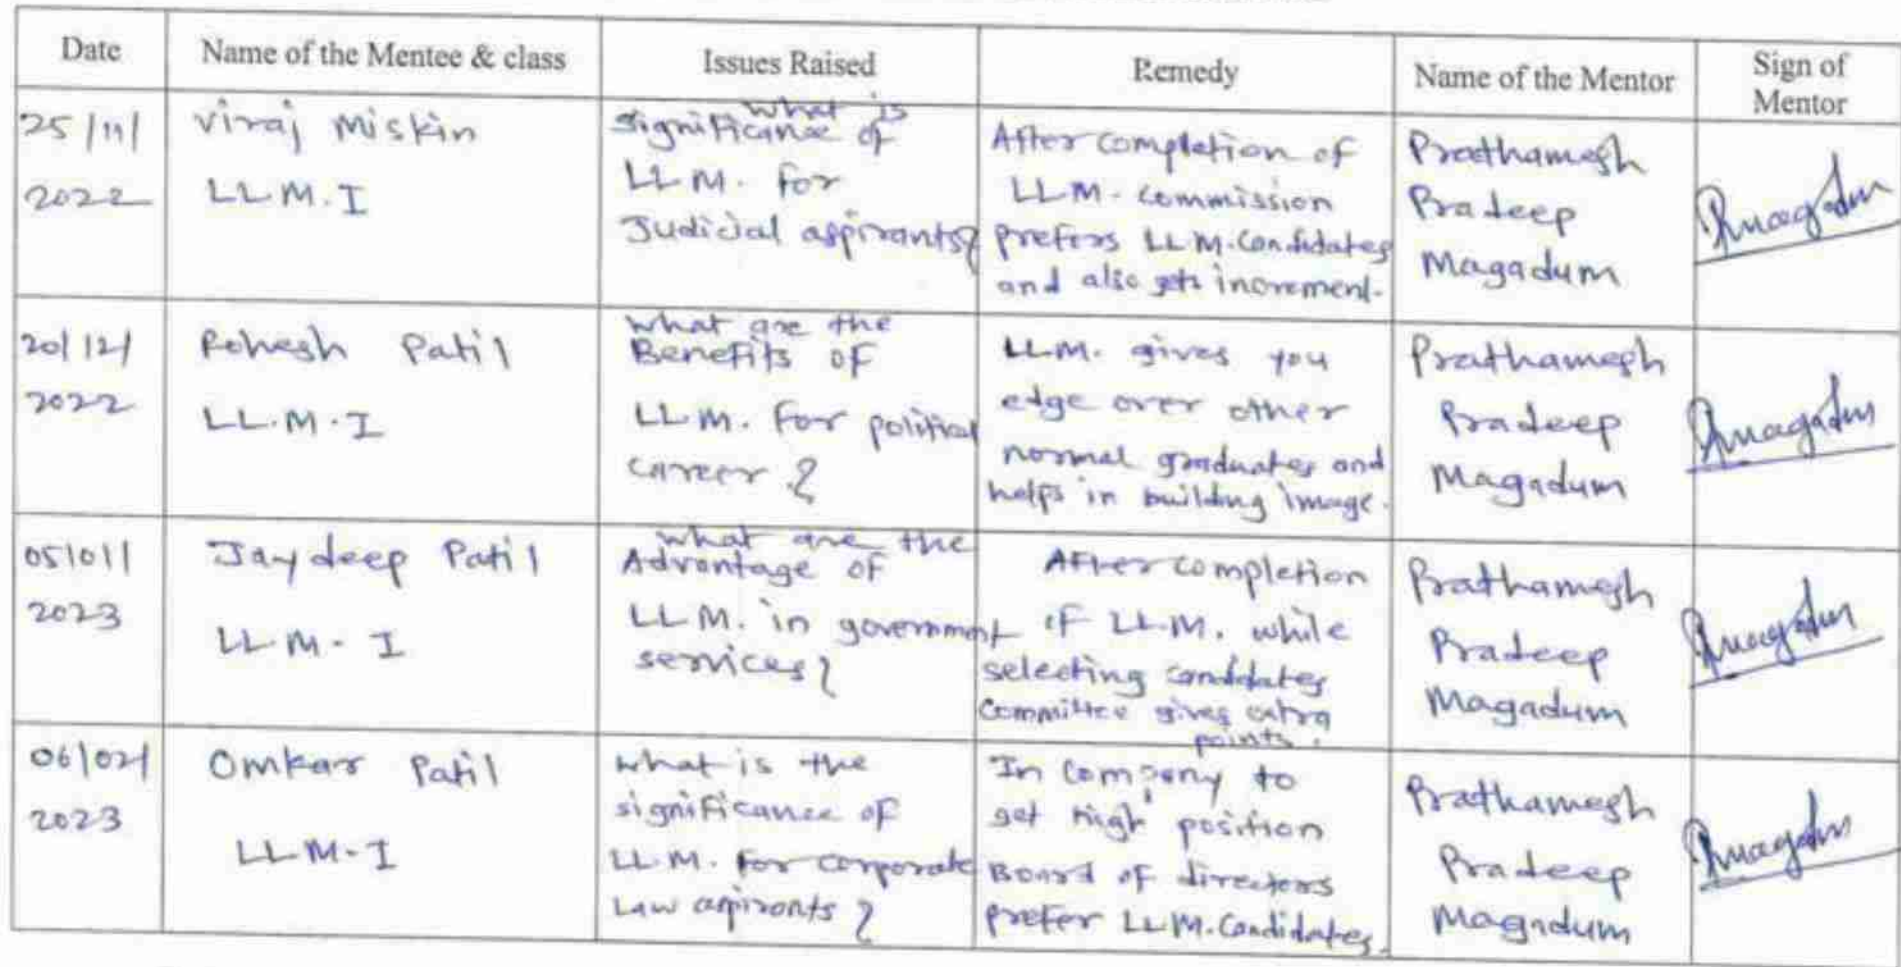 Date
Name of the Mentee & class
Issues Raised
Remedy
Name of the Mentor
Sign of
Mentor
25/11/
2022
Viraj Miskin
LLM.I
What is
significance of
LLM. for
Judicial aspirants?
After completion of
LLM. commission
prefers LLM. Candidates
and also gets increment.
Prathamesh
Pradeep
Magadum
20/12/
2022
Patil
LL.M.I
What are the
Benefits of
LLM. for political
career?
LLM. gives you
edge over other
normal graduates and
helps in building image.
Prathamesh
Pradeep
Magadum
05/01/
2023
Jaydeep Patil
LLM-I
What are the
Advantage of
LLM. in government
services?
After completion
of LLM. while
selecting candidates
Committee gives extra
points.
Prathamesh
Pradeep
Magadum
06/02/
2023
Omkar Patil
LLM-I
what is the
significance of
LLM. for corporate
Law aspirants?
In Company to
get high position
Board of directors
prefer LLM. Candidates.
Prathamesh
Pradeep
Magadum